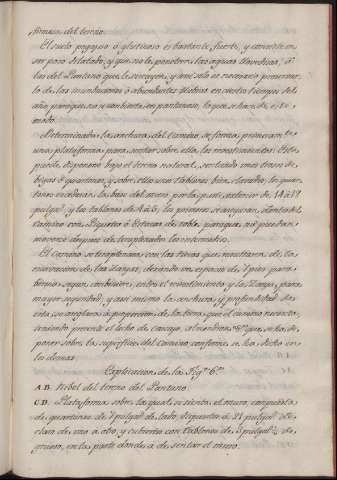 firmeza del terreno.
El suelo pegajoso ó glutinoso es bastante fuerte, y consiste en
ser poco dilatado, y que no le penetren las aguas llovedizas, ó
las del Pantano que le rodean, y asi solo es necesario preservar
lo de las inundaciones ó abundantes lluvias en ciertos tiempos del
año, para que no se cambie en pantanoso, lo que se hará de este
modo.
Determinada la anchura del Camino se forma primeramte.
una plataforma para sentar sobre ella los revestimientos. Este
puede disponerse bajo el terreno natural, sentando una trama de
bigas ó quartones, y sobre ella unos tablones bien clavados, los quar-
tones excederan la base del muro por la parte anterior de 14 á 17
pulgs. y los tablones de 4 á 5; los primeros se aseguran, á
camino con Piquetes ó Estacas de roble, para que no puedan
moverse despues de terraplenados los intermedios.
El Camino se terraplenara con las tierras que resultaren de la
escavacion de las Zanjas, dexando un espacio de 7 pies para
berma segun combiniere, entre el revestimiento y la Zanja, para
mayor seguridad, y asi mismo la anchura y profundidad de
esta, se arreglara á proporcion de la tierra que el camino necesita,
teniendo presente el lecho de cascajo, ó piedras &a. que se ha de
poner sobre la superficie del camino conforme se ha dicho en
los demas.
Explicacion de la Figa. 6a.
A B. Nibel del terreno del Pantano.
C D. Plataforma sobre la qual se sienta el muro, compuesta
de quartones de 7 pulgs. de lado, dispuestos á 21 pulgs. de
claro de uno a otro, y cubiertos con tablones de 3 pulgs. ½ de
grueso, en la parte donde se á de sentar el muro.